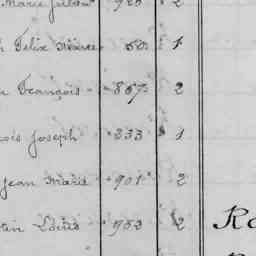 Marie Julien 926 2
Félix 50 1
François 867 2
ois Joseph 233 1
Jean Marie 901 2
tin Louis 953 2 Ro